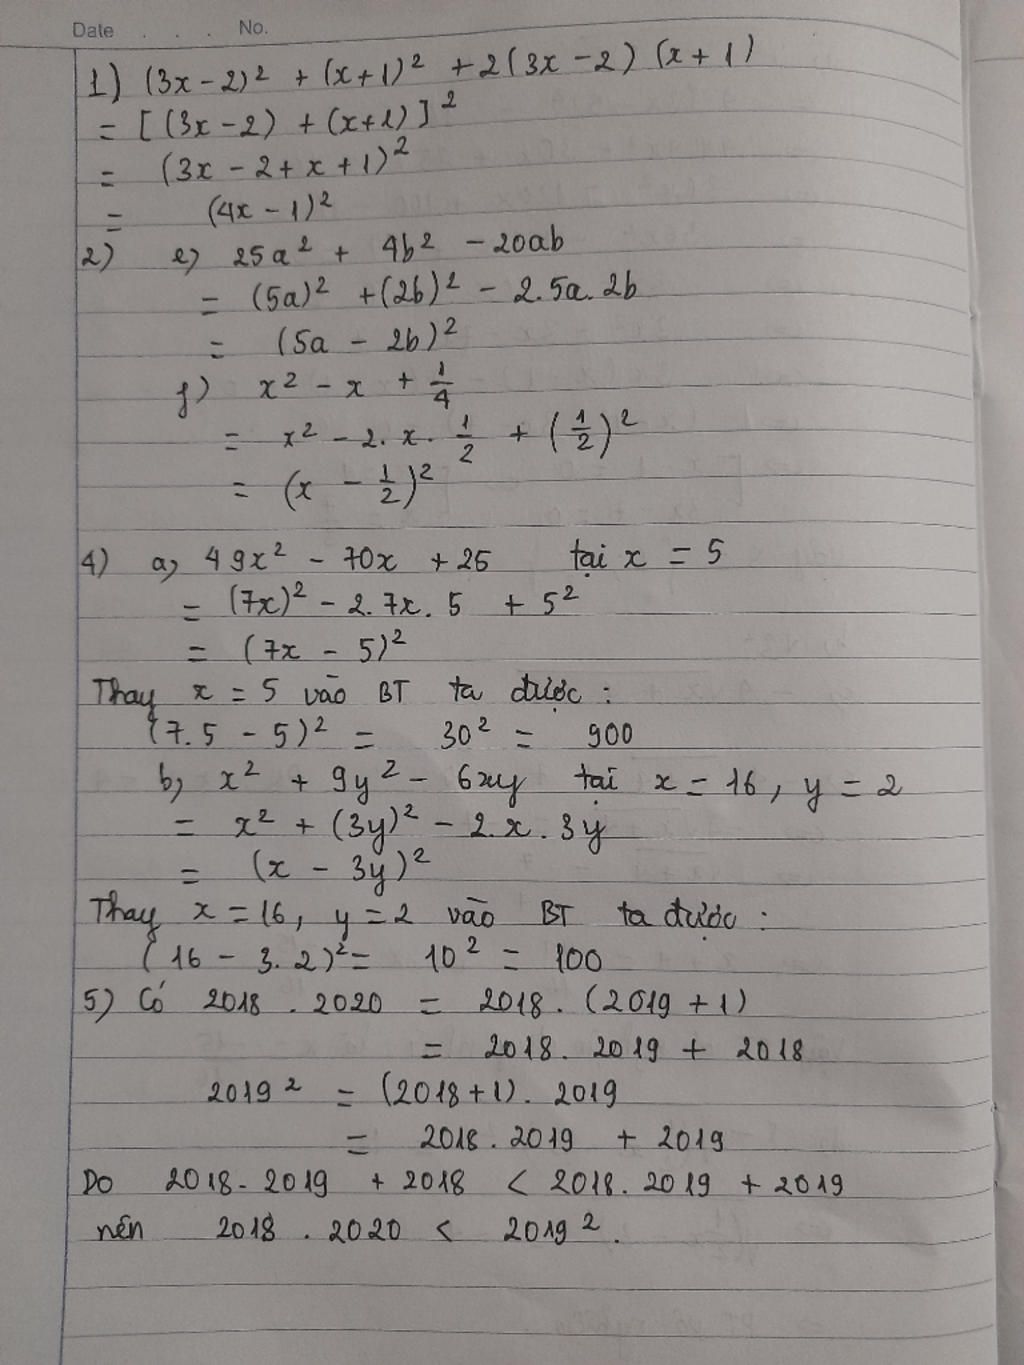 Date . . . No.
1) (3x - 2)² + (x + 1)² + 2(3x - 2) (x + 1)
= [(3x - 2) + (x + 1)]²
= (3x - 2 + x + 1)²
= (4x - 1)²
2) e) 25a² + 4b² - 20ab
= (5a)² + (2b)² - 2.5a.2b
= (5a - 2b)²
f) x² - x + 1/4
= x² - 2.x.1/2 + (1/2)²
= (x - 1/2)²
4) a) 49x² - 70x + 25 tại x = 5
= (7x)² - 2.7x.5 + 5²
= (7x - 5)²
Thay x = 5 vào BT ta được :
(7.5 - 5)² = 30² = 900
b) x² + 9y² - 6xy tại x = 16, y = 2
= x² + (3y)² - 2.x.3y
= (x - 3y)²
Thay x = 16, y = 2 vào BT ta được :
(16 - 3.2)² = 10² = 100
5) Có 2018 . 2020 = 2018 . (2019 + 1)
= 2018 . 2019 + 2018
2019² = (2018 + 1) . 2019
= 2018 . 2019 + 2019
Do 2018 . 2019 + 2018 < 2018 . 2019 + 2019
nên 2018 . 2020 < 2019².